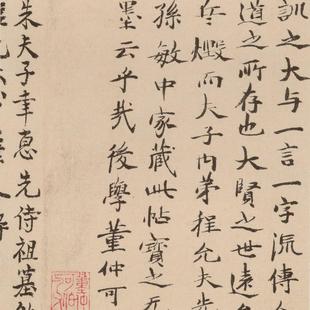 訓之大与一言一字流傳
道之所存也大賢之世遠
兵燬而夫子内弟程允夫
孫敏中家藏此帖寶之
墨云乎哉後學董仲可
朱夫子韋惠先侍祖墓